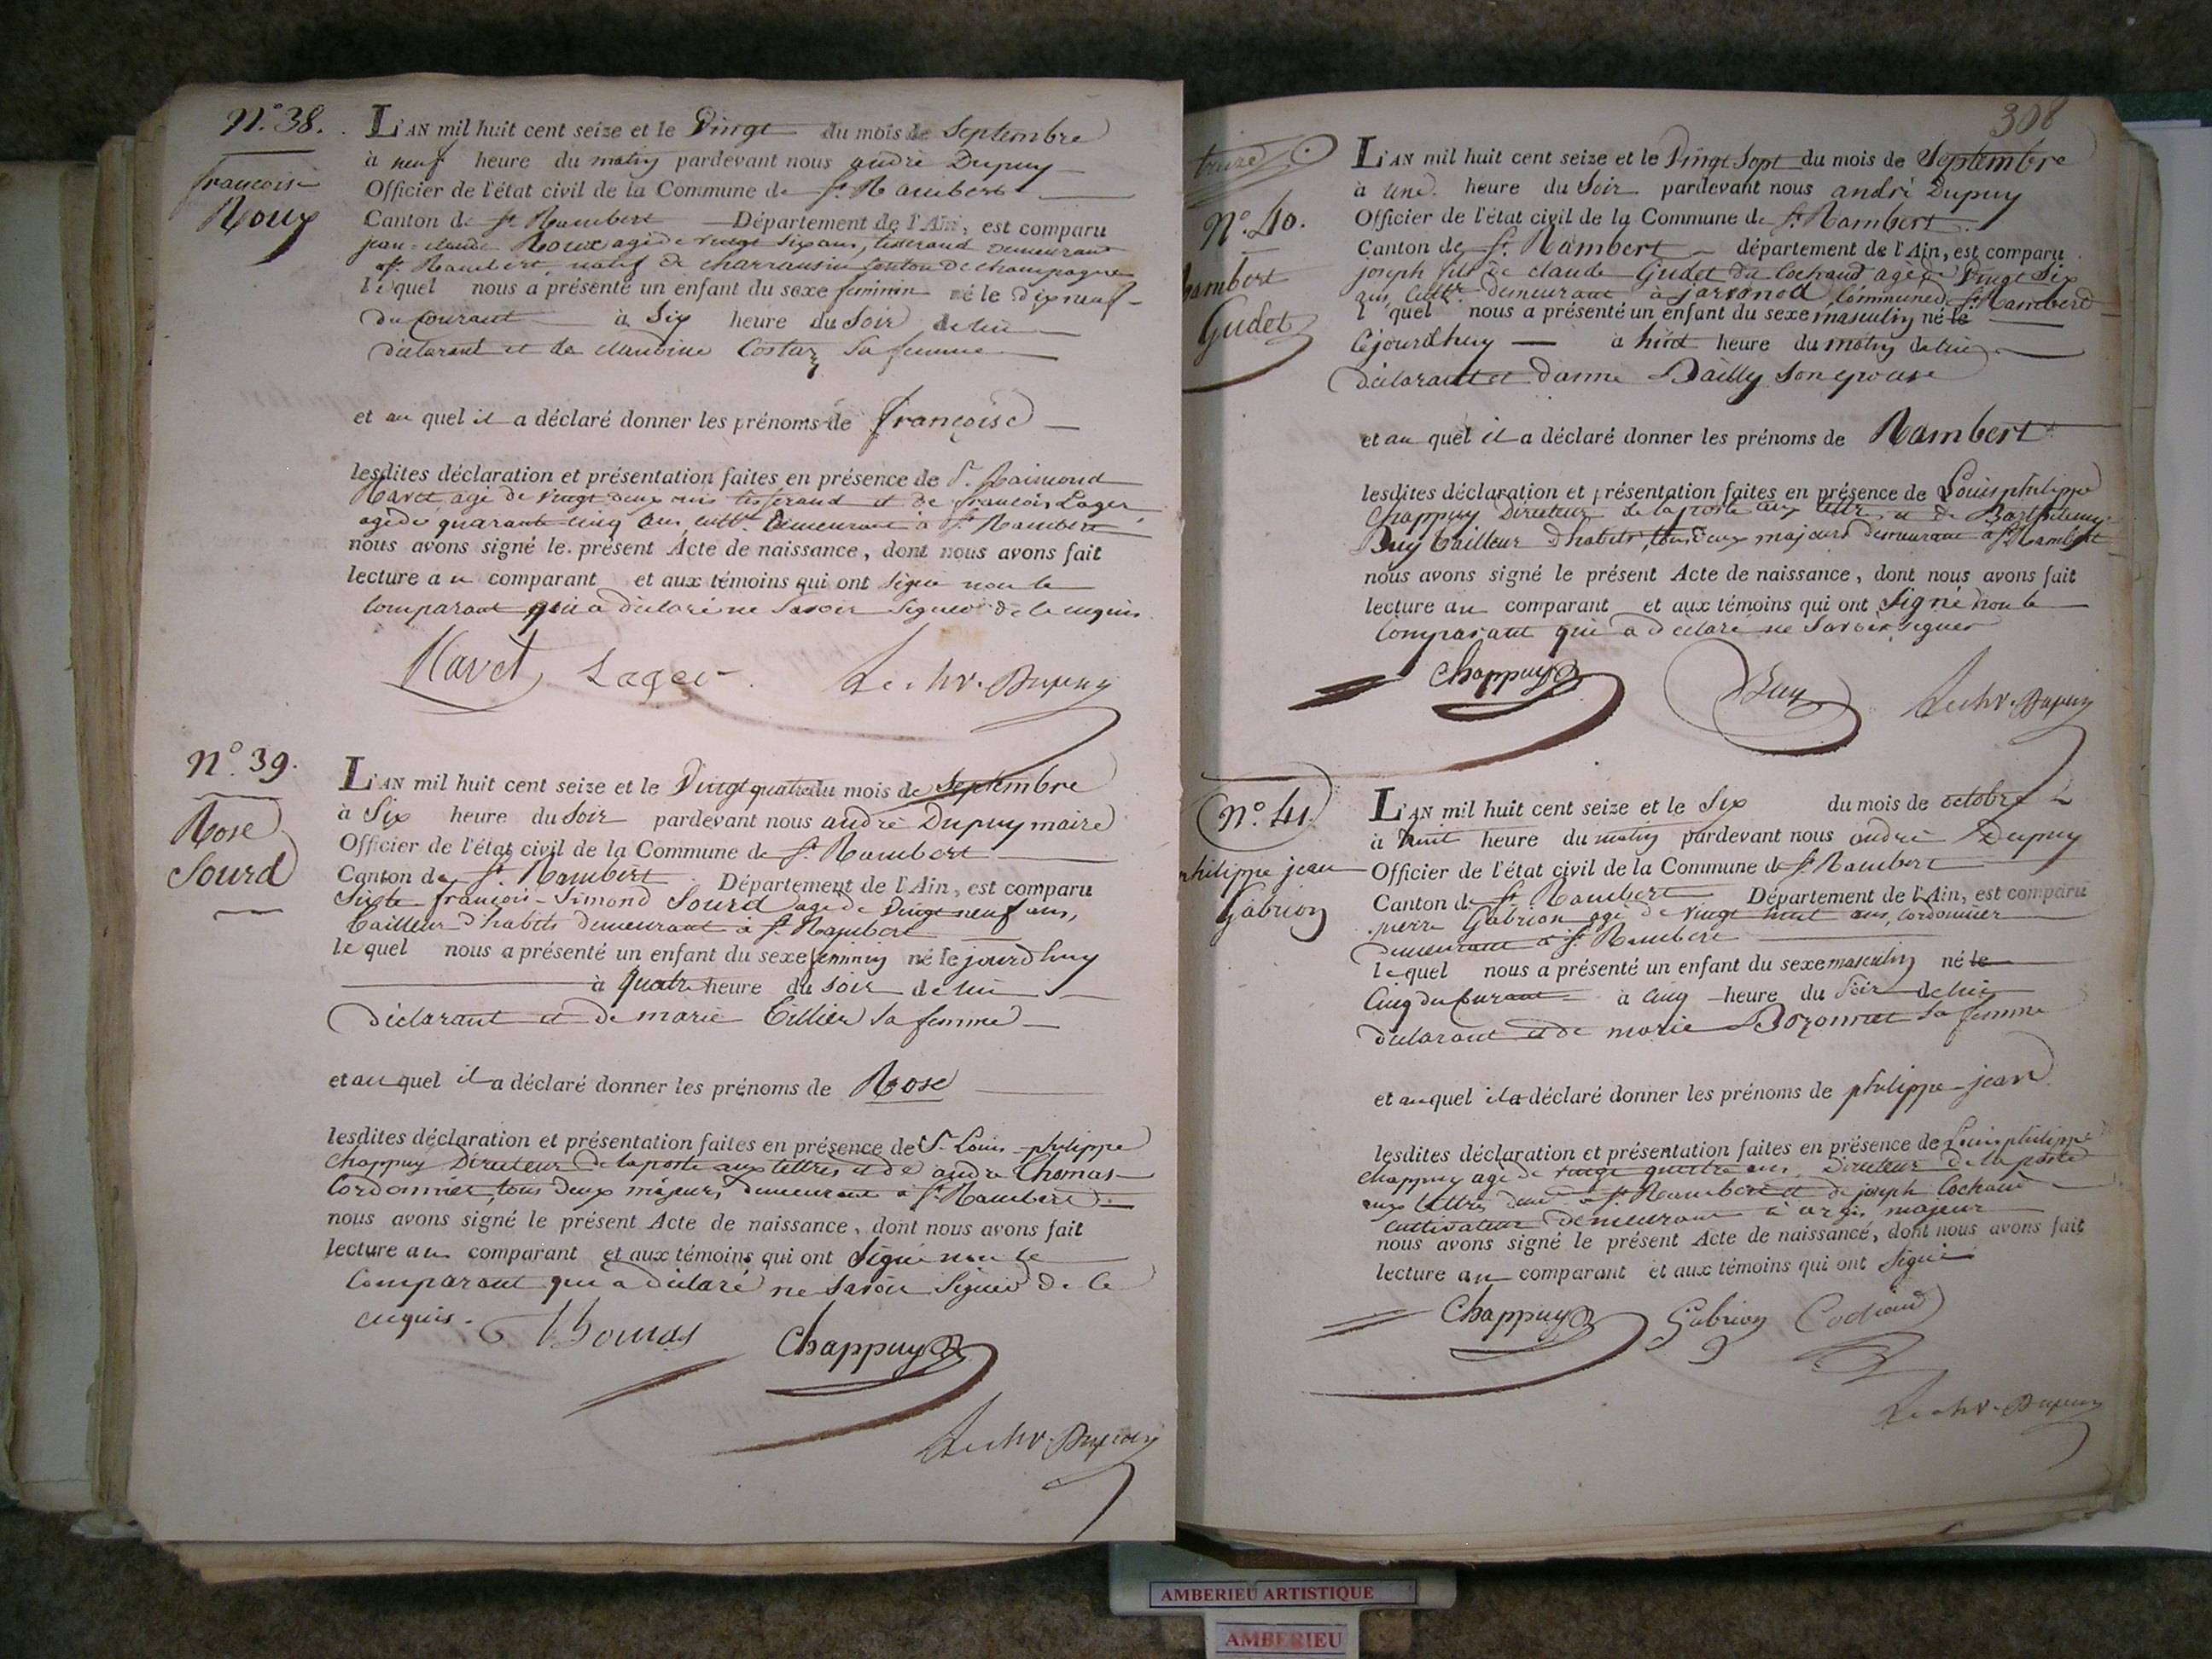 N.° 38.
françoise
Roux
L'AN mil huit cent seize et le Vingt du mois de Septembre
à neuf heure du matin pardevant nous andré Dupuy
Officier de l'état civil de la Commune de St. Rambert
Canton de St Rambert Département de l'Ain, est comparu
jean-claude Roux agé de vingt Six ans, tisserand demeurant
à St. Rambert, natif de charransin Canton de champagne
le quel nous a présenté un enfant du sexe feminin né le dixneuf
du Courant à Six heure du Soir de lui
déclarant et de claudine Costaz Sa femme
et au quel il a déclaré donner les prénoms de françoise
lesdites déclaration et présentation faites en présence de Sr. Raimond
Ravet, agé de vingt deux ans tisserand et de francois Lager,
agé de quarante cinq ans cultr. demeurant à St. Rambert
nous avons signé le présent Acte de naissance, dont nous avons fait
lecture au comparant et aux témoins qui ont signé non le
Comparant qui a déclaré ne Savoir Signer de ce enquis.
Ravet Lager Le chr. Dupuy
N.° 39.
Rose
Sourd
L'AN mil huit cent seize et le Vingt quatre du mois de Septembre
à Six heure du Soir pardevant nous andré Dupuy maire
Officier de l'état civil de la Commune de St. Rambert
Canton de St. Rambert Département de l'Ain, est comparu
françois-Simond Sourd agé de Vingt neuf ans,
tailleur d'habits demeurant à St. Rambert
le quel nous a présenté un enfant du sexe feminin né le jourdhuy
à quatre heure du soir de lui
déclarant et de marie Tellier Sa femme
et au quel il a déclaré donner les prénoms de Rose
lesdites déclaration et présentation faites en présence de Sr. Louis-philippe
Chappuy Directeur de la poste aux lettres et de andré Thomas
Cordonnier, tous deux majeurs, demeurant à St. Rambert
nous avons signé le présent Acte de naissance, dont nous avons fait
lecture au comparant et aux témoins qui ont Signé non le
Comparant qui a déclaré ne Savoir Signer de ce
enquis.
Thomas Chappuy
Le chr. Dupuy
308
N.° 40.
Rambert
Gudet
L'AN mil huit cent seize et le Vingt Sept du mois de Septembre
à une heure du Soir pardevant nous andré Dupuy
Officier de l'état civil de la Commune de St. Rambert
Canton de St. Rambert département de l'Ain, est comparu
joseph fils de claude Gudet dit Cochaud agé de Vingt Six
ans, cultr. demeurant à javornod Commune de St. Rambert
l quel nous a présenté un enfant du sexe masculin né le
Cejourdhuy à huit heure du matin de lui
déclarant et d'anne Bailly Son epouse
et au quel il a déclaré donner les prénoms de Rambert
lesdites déclaration et présentation faites en présence de Louis philippe
Chappuy Directeur de la poste aux lettres et de Barthelemy
Buy tailleur d'habits, tous deux majeurs demeurant à St. Rambert
nous avons signé le présent Acte de naissance, dont nous avons fait
lecture au comparant et aux témoins qui ont Signé non le
Comparant qui a déclaré ne Savoir signer
Chappuy Buy Le chr. Dupuy
N.° 41.
philippe jean
Gabrion
L'AN mil huit cent seize et le Six du mois de octobre
à huit heure du matin pardevant nous andré Dupuy
Officier de l'état civil de la Commune de St. Rambert
Canton de St. Rambert Département de l'Ain, est comparu
pierre Gabrion agé de vingt huit ans, Cordonnier
demeurant à St Rambert
le quel nous a présenté un enfant du sexe masculin né le
Cinq du Curant à Cinq heure du Soir de lui
déclarant et de marie Bozonnet Sa femme
et au quel il a déclaré donner les prénoms de philippe-jean
lesdites déclaration et présentation faites en présence de Louis philippe
Chappuy agé de vingt quatre ans, Directeur de la poste
aux lettres demt. à St. Rambert et de joseph Cochaud
cultivateur demeurant à argis, majeur
nous avons signé le présent Acte de naissance, dont nous avons fait
lecture au comparant et aux témoins qui ont Signé
Chappuy Gabrion Cochaud
Le chr. Dupuy
AMBERIEU ARTISTIQUE
AMBERIEU